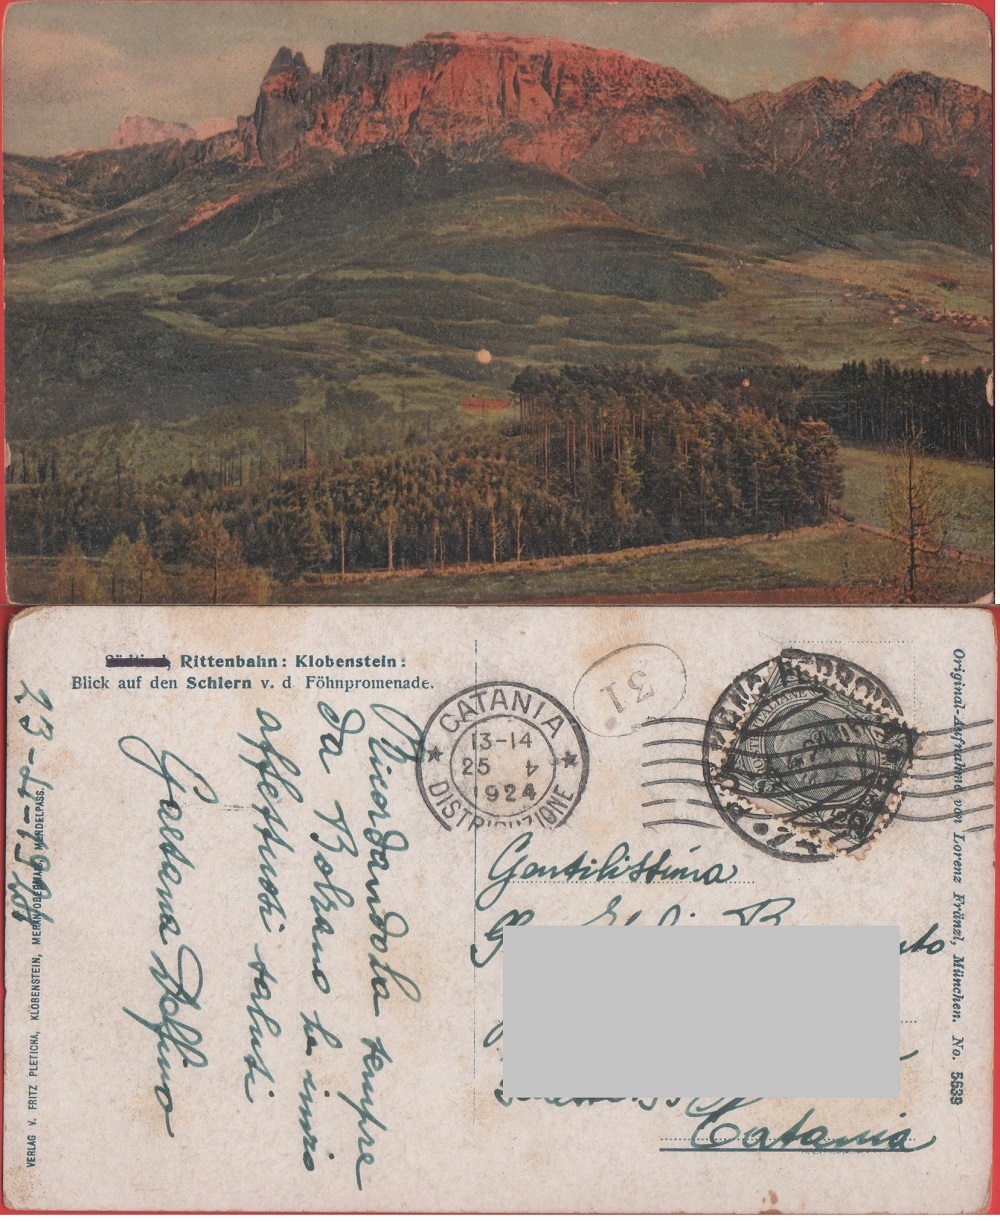 Südtirol, Rittenbahn: Klobenstein:
Blick auf den Schlern v. d Föhnpromenade.
CATANIA
13-14
25 V
1924
DISTRIBUZIONE
31
Original-Aufnahme von Lorenz Fränzl, München. No. 5639
VERLAG V. FRITZ PLETICHA, KLOBENSTEIN, MERAN/OBERMAIS, MENDELPASS.
Ricordandola sempre
da Bolzano le invio
affettuosi saluti
Gaetana Delfino
Gentilissima
Catania